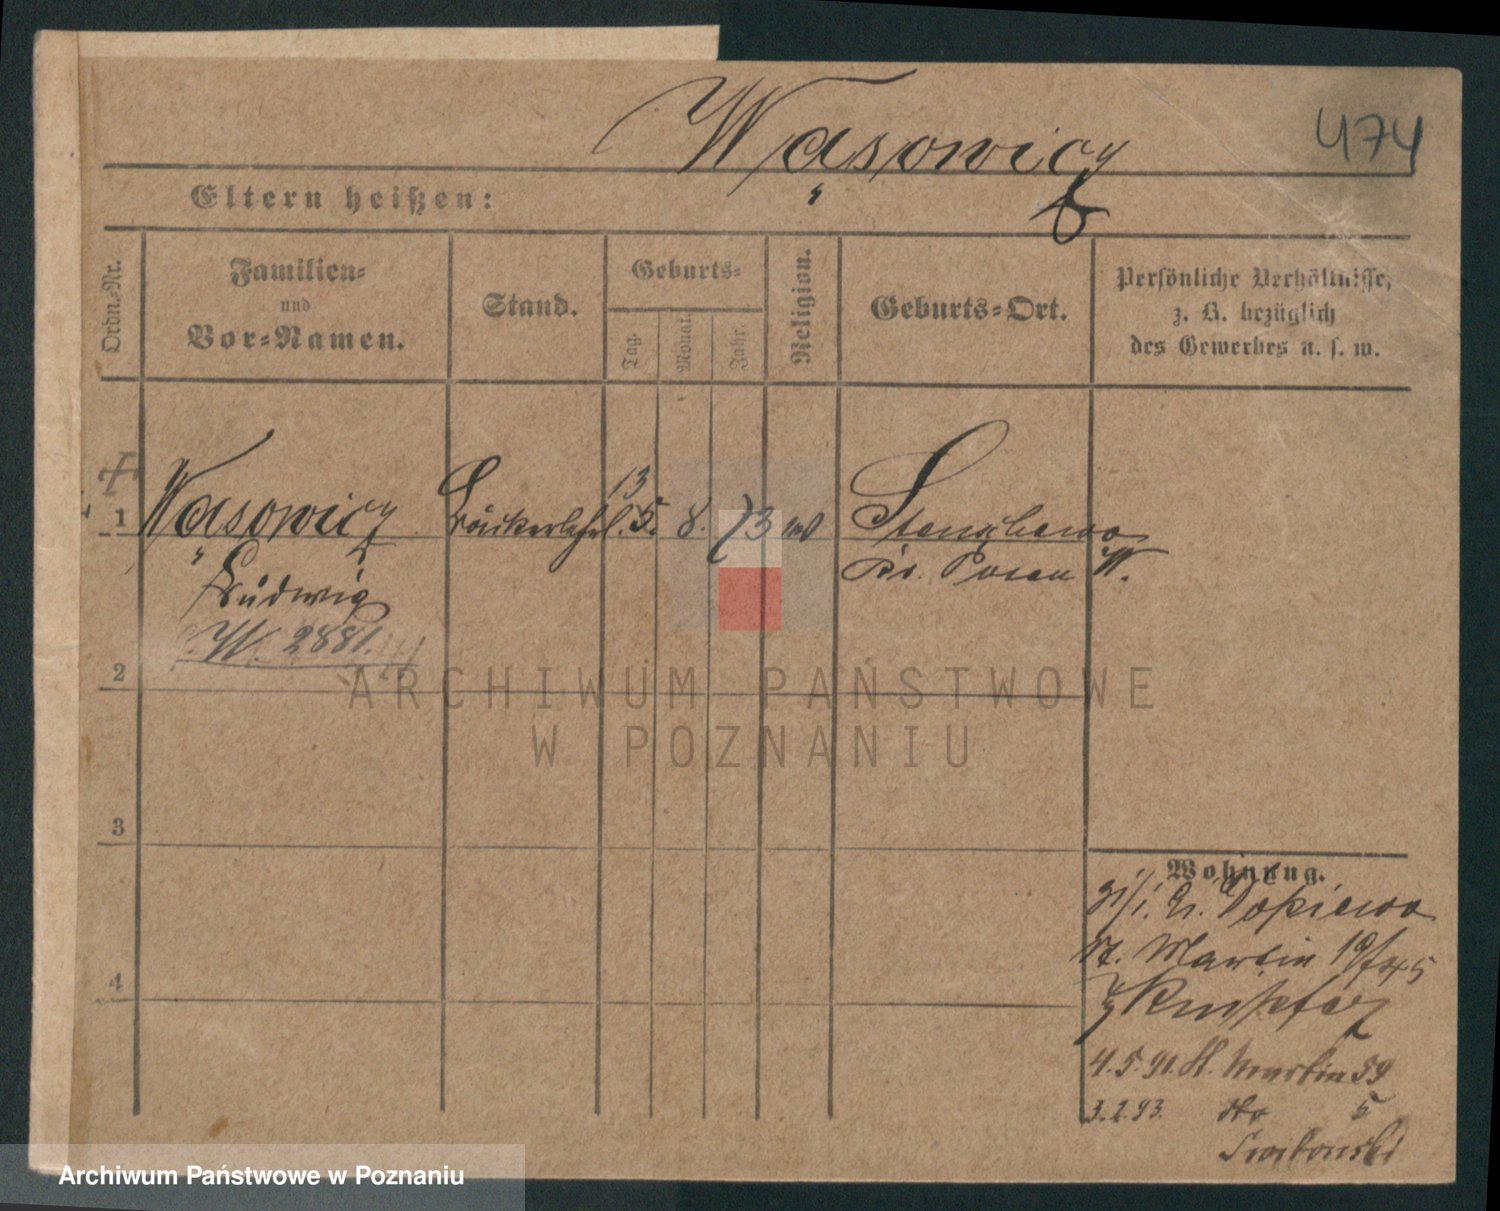 474
Wąsowicz
Eltern heißen:
Ordn.-Nr.
Familien-
und
Vor-Namen.
Stand.
Geburts-
Tag.
Monat.
Jahr.
Religion.
Geburts-Ort.
Persönliche Verhältnisse,
z. B. bezüglich
des Gewerbes u. s. w.
1
Wąsowicz
Ludwig
W. 2881.
Bäckerlehrl.
13
5.
8.
73
Kr. Posen W.
2
3
4
Wohnung.
Dopiewo
St. Martin
4.5.91. St. Martin 59
3.2.93. dto 5
ARCHIWUM PAŃSTWOWE
W POZNANIU
Archiwum Państwowe w Poznaniu